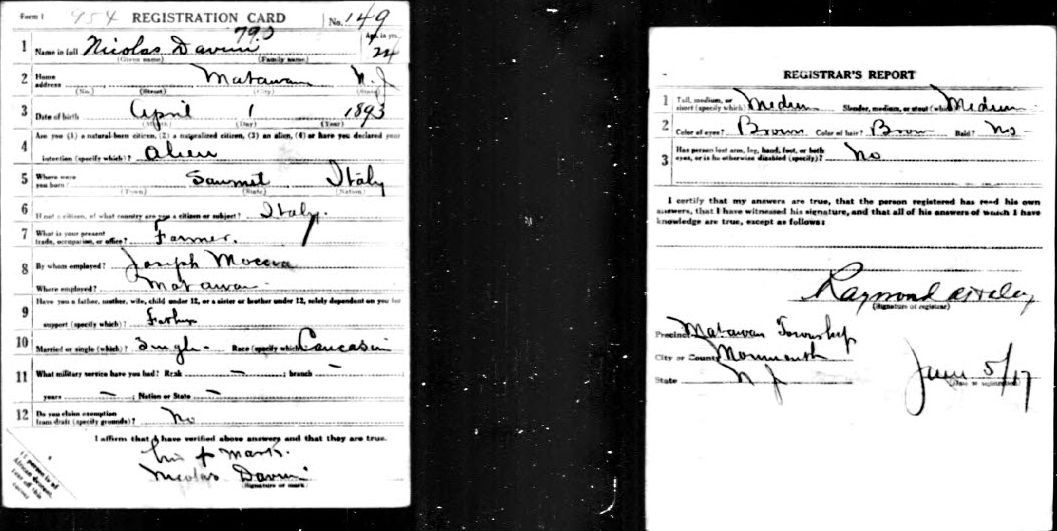 Form 1 954 REGISTRATION CARD No. 149
793
1 Name in full Nicolas Davini Age, in yrs. 24
(Given name) (Family name)
2 Home address Matawan N. J
(No.) (Street) (City) (State)
3 Date of birth April 1 1893
(Month) (Day) (Year)
4 Are you (1) a natural-born citizen, (2) a naturalized citizen, (3) an alien, (4) or have you declared your
intention (specify which)? alien
5 Where were you born? Italy
(Town) (State) (Nation)
6 If not a citizen, of what country are you a citizen or subject? Italy.
7 What is your present trade, occupation, or office? Farmer.
8 By whom employed? Joseph Moccia
Where employed? Matawan
9 Have you a father, mother, wife, child under 12, or a sister or brother under 12, solely dependent on you for
support (specify which)? Father
10 Married or single (which)? Single. Race (specify which)? Caucasin
11 What military service have you had? Rank — ; branch —
years — ; Nation or State —
12 Do you claim exemption from draft (specify grounds)? No
I affirm that I have verified above answers and that they are true.
his + mark.
Nicolas Davini
(Signature or mark)
If person is of African descent, tear off this corner
REGISTRAR'S REPORT
1 Tall, medium, or short (specify which)? Medium Slender, medium, or stout (which)? Medium
2 Color of eyes? Brown Color of hair? Brown Bald? No
3 Has person lost arm, leg, hand, foot, or both eyes, or is he otherwise disabled (specify)? No
I certify that my answers are true, that the person registered has read his own
answers, that I have witnessed his signature, and that all of his answers of which I have
knowledge are true, except as follows:
Raymond
(Signature of registrar)
Precinct Matawan Township
City or County Monmouth
State N J
June 5/17
(Date of registration)